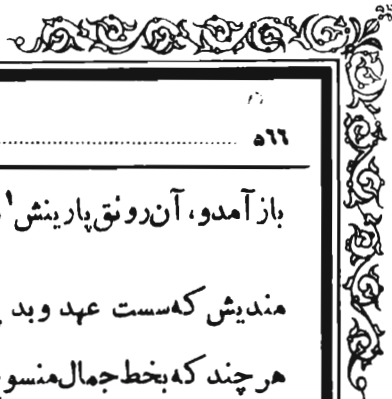 ۵۶۶
باز آمد و، آن رونق پارینش۱
مندیش که سست عهد و بد
هر چند که بخط جمال منسو